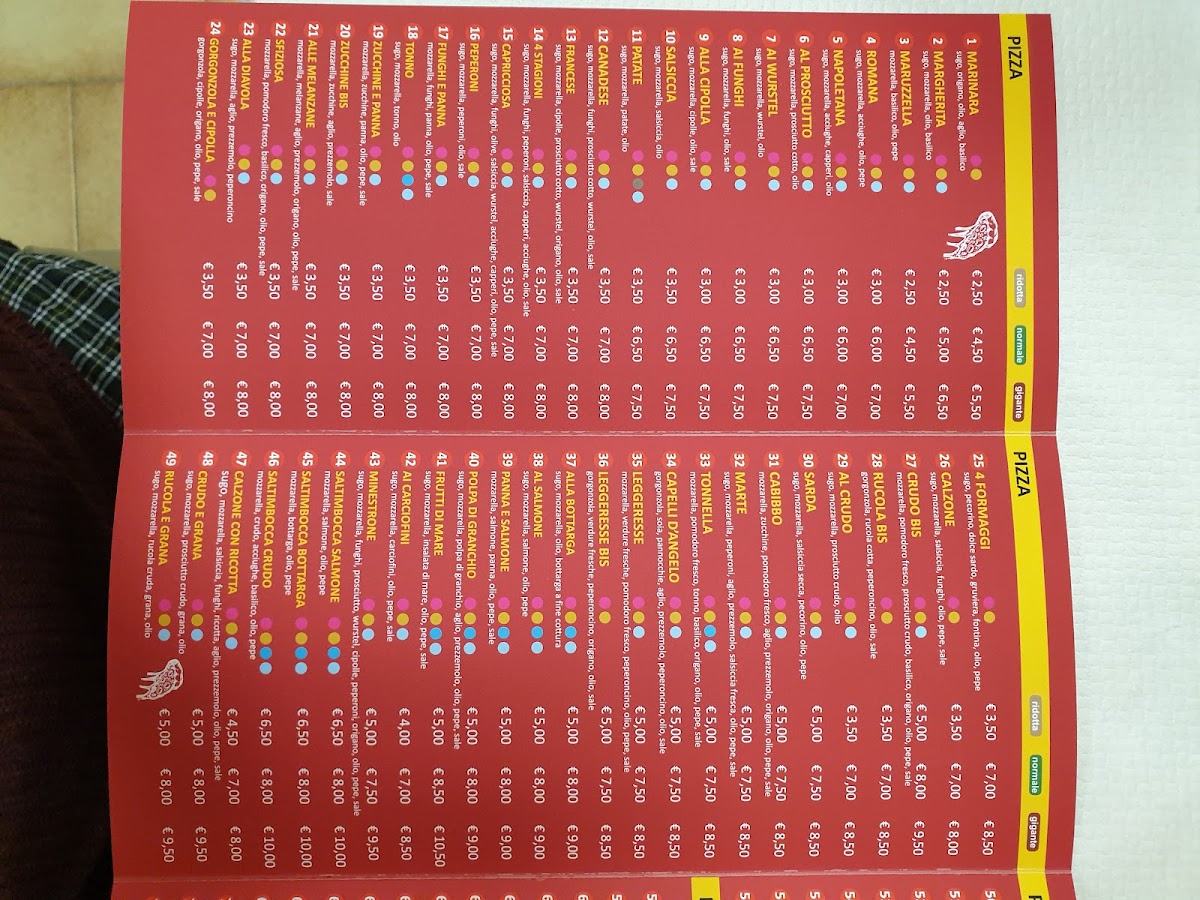 PIZZA
ridotta normale gigante
1 MARINARA € 2,50 € 4,50 € 5,50
sugo, origano, olio, aglio, basilico
2 MARGHERITA € 2,50 € 5,00 € 6,50
sugo, mozzarella, olio, basilico
3 MARUZZELLA € 2,50 € 4,50 € 5,50
mozzarella, basilico, olio, pepe
4 ROMANA € 3,00 € 6,00 € 7,00
sugo, mozzarella, acciughe, olio, pepe
5 NAPOLETANA € 3,00 € 6,00 € 7,00
sugo, mozzarella, acciughe, capperi, olio
6 AL PROSCIUTTO € 3,00 € 6,50 € 7,50
sugo, mozzarella, prosciutto cotto, olio
7 AI WURSTEL € 3,00 € 6,50 € 7,50
sugo, mozzarella, wurstel, olio
8 AI FUNGHI € 3,00 € 6,50 € 7,50
sugo, mozzarella, funghi, olio, sale
9 ALLA CIPOLLA € 3,00 € 6,50 € 7,50
sugo, mozzarella, cipolle, olio, sale
10 SALSICCIA € 3,50 € 6,50 € 7,50
sugo, mozzarella, salsiccia, olio
11 PATATE € 3,50 € 6,50 € 7,50
sugo, mozzarella, patate, olio
12 CANADESE € 3,50 € 7,00 € 8,00
sugo, mozzarella, funghi, prosciutto cotto, wurstel, olio, sale
13 FRANCESE € 3,50 € 7,00 € 8,00
sugo, mozzarella, cipolle, prosciutto cotto, wurstel, origano, olio, sale
14 4 STAGIONI € 3,50 € 7,00 € 8,00
sugo, mozzarella, funghi, peperoni, salsiccia, capperi, acciughe, olio, sale
15 CAPRICCIOSA € 3,50 € 7,00 € 8,00
sugo, mozzarella, funghi, olive, salsiccia, wurstel, acciughe, capperi, olio, pepe, sale
16 PEPERONI € 3,50 € 7,00 € 8,00
sugo, mozzarella, peperoni, olio, sale
17 FUNGHI E PANNA € 3,50 € 7,00 € 8,00
mozzarella, funghi, panna, olio, pepe, sale
18 TONNO € 3,50 € 7,00 € 8,00
sugo, mozzarella, tonno, olio
19 ZUCCHINE E PANNA € 3,50 € 7,00 € 8,00
mozzarella, zucchine, panna, olio, pepe, sale
20 ZUCCHINE BIS € 3,50 € 7,00 € 8,00
mozzarella, zucchine, aglio, prezzemolo, sale
21 ALLE MELANZANE € 3,50 € 7,00 € 8,00
mozzarella, melanzane, aglio, prezzemolo, origano, olio, pepe, sale
22 SFIZIOSA € 3,50 € 7,00 € 8,00
mozzarella, pomodoro fresco, basilico, origano, olio, pepe, sale
23 ALLA DIAVOLA € 3,50 € 7,00 € 8,00
sugo, mozzarella, aglio, prezzemolo, peperoncino
24 GORGONZOLA E CIPOLLA € 3,50 € 7,00 € 8,00
gorgonzola, cipolle, origano, olio, pepe, sale
PIZZA
ridotta normale gigante
25 4 FORMAGGI € 3,50 € 7,00 € 8,50
sugo, pecorino, dolce sardo, gruviera, fontina, olio, pepe
26 CALZONE € 3,50 € 7,00 € 8,00
sugo, mozzarella, salsiccia, funghi, olio, pepe, sale
27 CRUDO BIS € 5,00 € 8,00 € 9,50
mozzarella, pomodoro fresco, prosciutto crudo, basilico, origano, olio, pepe, sale
28 RUCOLA BIS € 3,50 € 7,50 € 8,50
gorgonzola, rucola cotta, peperoncino, olio, sale
29 AL CRUDO € 3,50 € 7,00 € 8,50
sugo, mozzarella, prosciutto crudo, olio
30 SARDA € 5,00 € 7,50 € 8,50
sugo, mozzarella, salsiccia secca, pecorino, olio, pepe
31 CABIBBO € 5,00 € 7,50 € 8,50
mozzarella, zucchine, pomodoro fresco, aglio, prezzemolo, origano, olio, pepe, sale
32 MARTE € 5,00 € 7,50 € 8,50
sugo, mozzarella, peperoni, aglio, prezzemolo, salsiccia fresca, olio, pepe, sale
33 TONNELLA € 5,00 € 7,50 € 8,50
mozzarella, pomodoro fresco, tonno, basilico, origano, olio, pepe, sale
34 CAPELLI D'ANGELO € 5,00 € 7,50 € 8,50
gorgonzola, soia, pannocchie, aglio, prezzemolo, peperoncino, olio, sale
35 LEGGERESSE € 5,00 € 7,50 € 8,50
mozzarella, verdure fresche, pomodoro fresco, peperoncino, olio, pepe, sale
36 LEGGERESSE BIS € 5,00 € 7,50 € 8,50
gorgonzola, verdure fresche, peperoncino, origano, olio, sale
37 ALLA BOTTARGA € 5,00 € 8,00 € 9,00
sugo, mozzarella, olio, bottarga a fine cottura
38 AL SALMONE € 5,00 € 8,00 € 9,00
sugo, mozzarella, salmone, olio, pepe
39 PANNA E SALMONE € 5,00 € 8,00 € 9,00
mozzarella, salmone, panna, olio, pepe, sale
40 POLPA DI GRANCHIO € 5,00 € 8,00 € 9,00
sugo, mozzarella, polpa di granchio, aglio, prezzemolo, olio, pepe, sale
41 FRUTTI DI MARE € 5,00 € 8,50 € 10,50
sugo, mozzarella, insalata di mare, olio, pepe, sale
42 AI CARCIOFINI € 4,00 € 7,00 € 8,50
sugo, mozzarella, carciofini, olio, pepe, sale
43 MINESTRONE € 5,00 € 7,50 € 9,50
sugo, mozzarella, funghi, prosciutto, wurstel, cipolle, peperoni, origano, olio, pepe, sale
44 SALTIMBOCCA SALMONE € 6,50 € 8,00 € 10,00
mozzarella, salmone, olio, pepe
45 SALTIMBOCCA BOTTARGA € 6,50 € 8,00 € 10,00
mozzarella, bottarga, olio, pepe
46 SALTIMBOCCA CRUDO € 6,50 € 8,00 € 10,00
mozzarella, crudo, acciughe, basilico, olio, pepe
47 CALZONE CON RICOTTA € 4,50 € 7,00 € 8,00
sugo, mozzarella, salsiccia, funghi, ricotta, aglio, prezzemolo, origano, olio, pepe, sale
48 CRUDO E GRANA € 5,00 € 8,00 € 9,50
sugo, mozzarella, prosciutto crudo, grana, olio
49 RUCOLA E GRANA € 5,00 € 8,00 € 9,50
sugo, mozzarella, rucola cruda, grana, olio